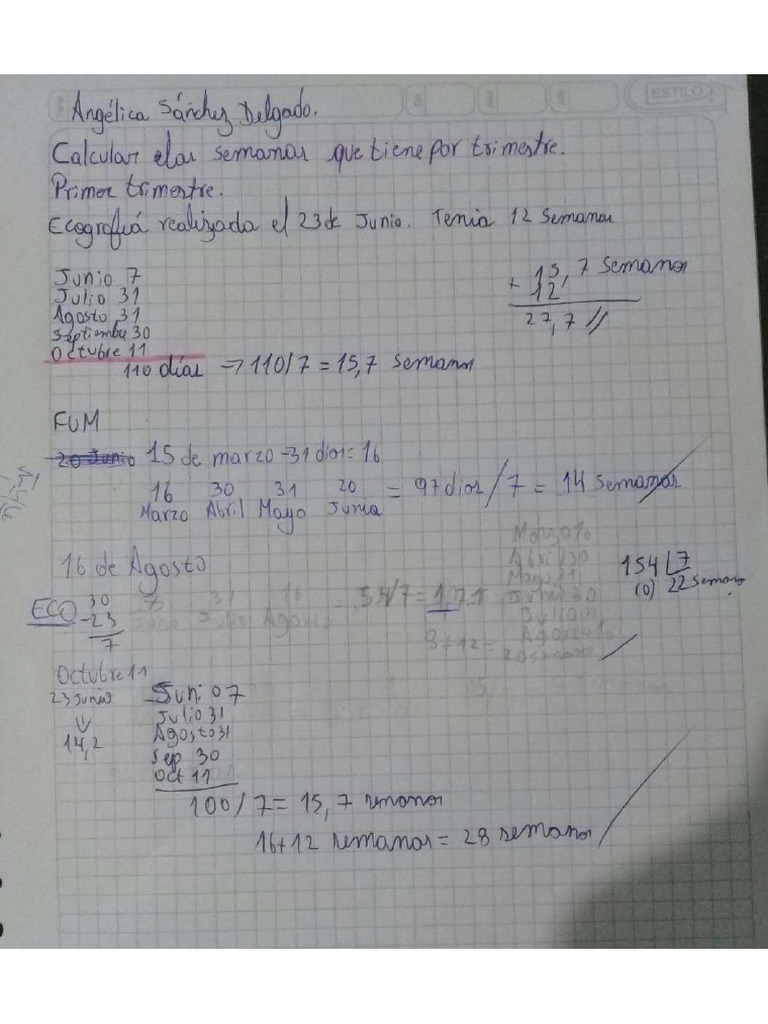 ESTILO
Angélica Sánchez Delgado.
Calcular las semanas que tiene por trimestre.
Primer trimestre.
Ecografiá realizada el 23 de Junio. Tenia 12 Semanas
Junio 7
Julio 31
Agosto 31
Septiembre 30
Octubre 11
110 días → 110/7 = 15,7 semanas
15,7 semanas
+ 12
27,7 //
FUM
20 Junio 15 de marzo - 31 dias = 16
16 30 31 20 = 97 dias / 7 = 14 semanas
Marzo Abril Mayo Junio
16 de Agosto
ECO 30
- 23
7
Abril 30
Mayo 31
Julio 31
154 7
(0) 22 semanas
8 + 12 =
Octubre 11
23 Junio
↓
14,2
Juni 07
Julio 31
Agosto 31
Sep 30
Oct 11
100 / 7 = 15,7 semanas
16 + 12 semanas = 28 semanas